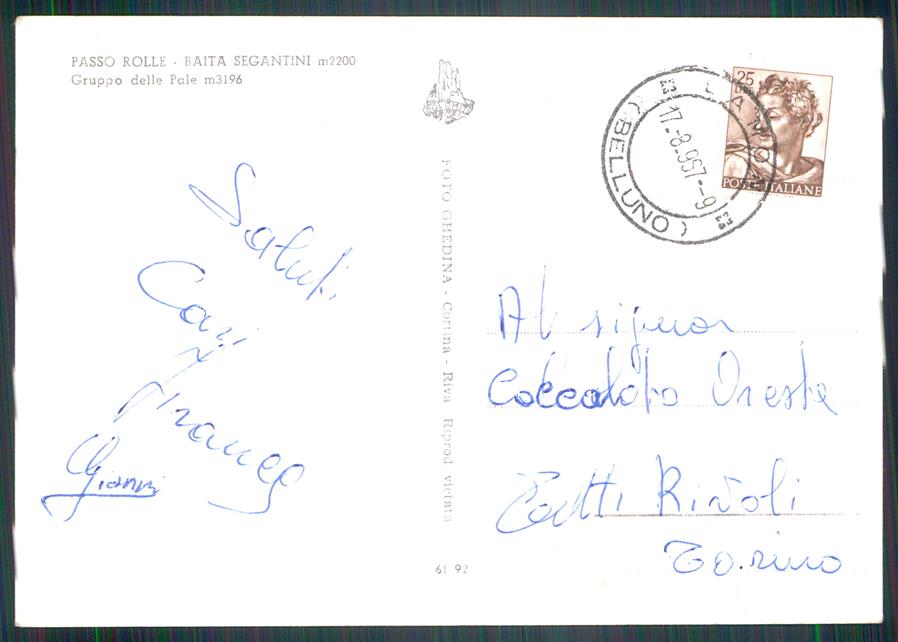 PASSO ROLLE - BAITA SEGANTINI m2200
Gruppo delle Pale m3196
Saluti
Cari
Franco
Gianni
FOTO GHEDINA - Cortina - Riva Riprod vietata
61 92
25
LIRE
POSTE ITALIANE
LAMON
(BELLUNO)
Al signor
Oreste
Rivoli
Torino